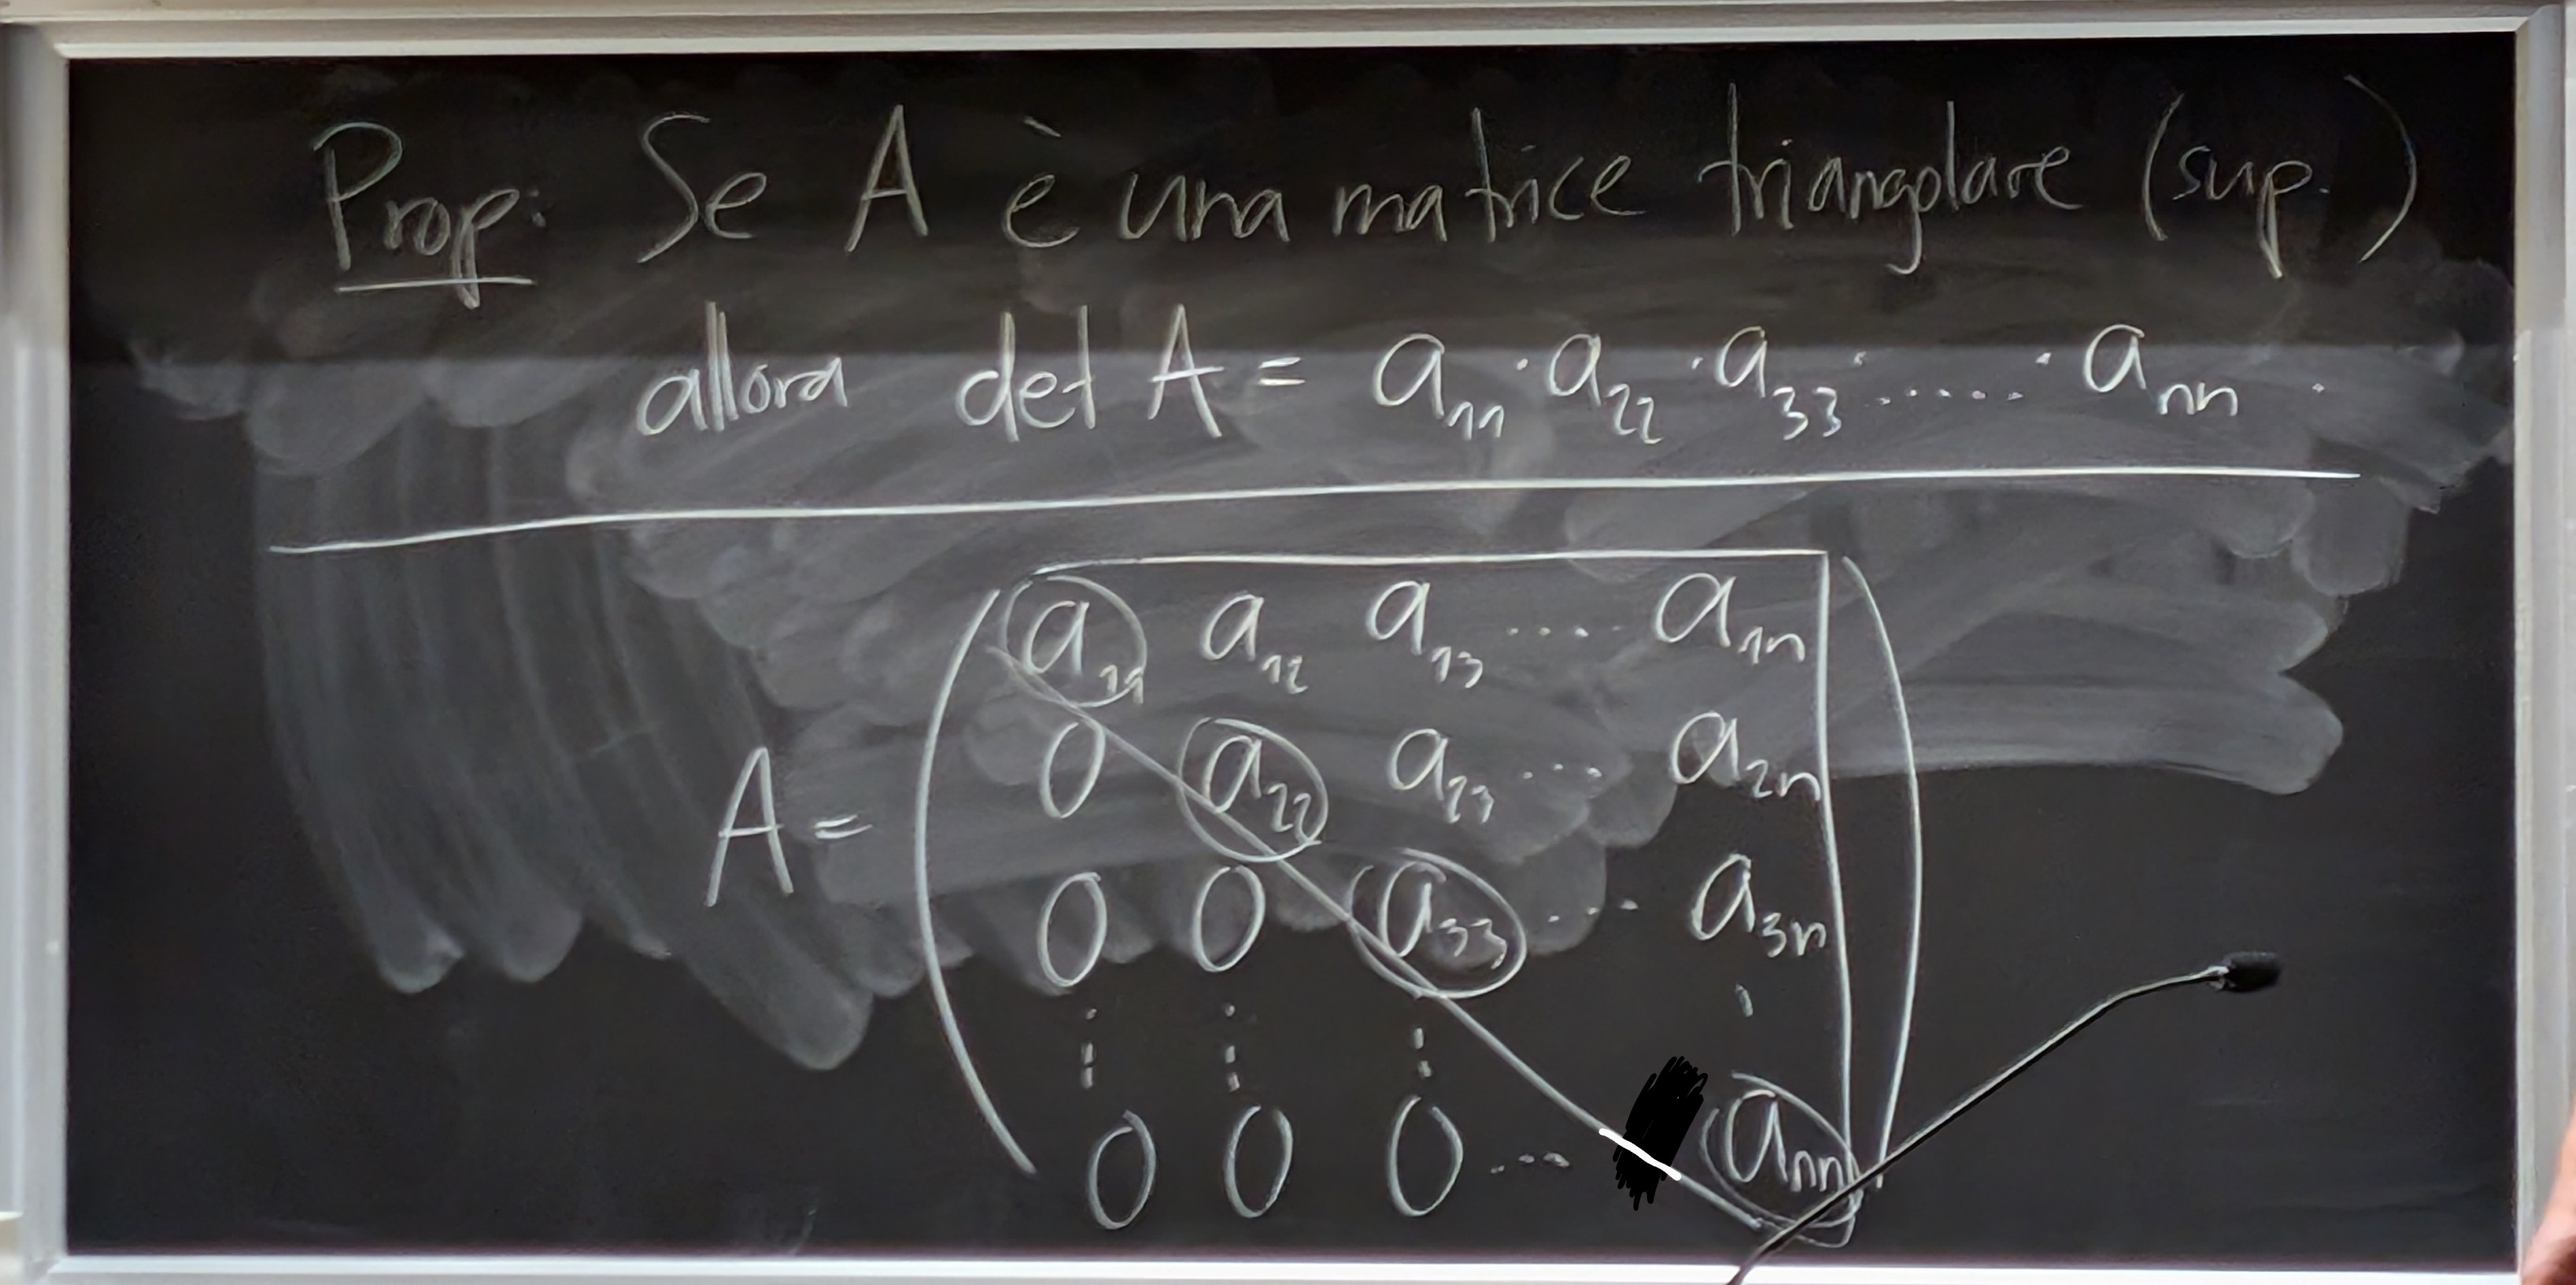 Prop: Se A è una matrice triangolare (sup.)
allora det A = a₁₁ · a₂₂ · a₃₃ · ..... · aₙₙ .
a₁₁ a₁₂ a₁₃ .... a₁ₙ
0 a₂₂ a₂₃ ... a₂ₙ
A = 0 0 a₃₃ ... a₃ₙ
⋮ ⋮ ⋮ ⋮
0 0 0 ... aₙₙ